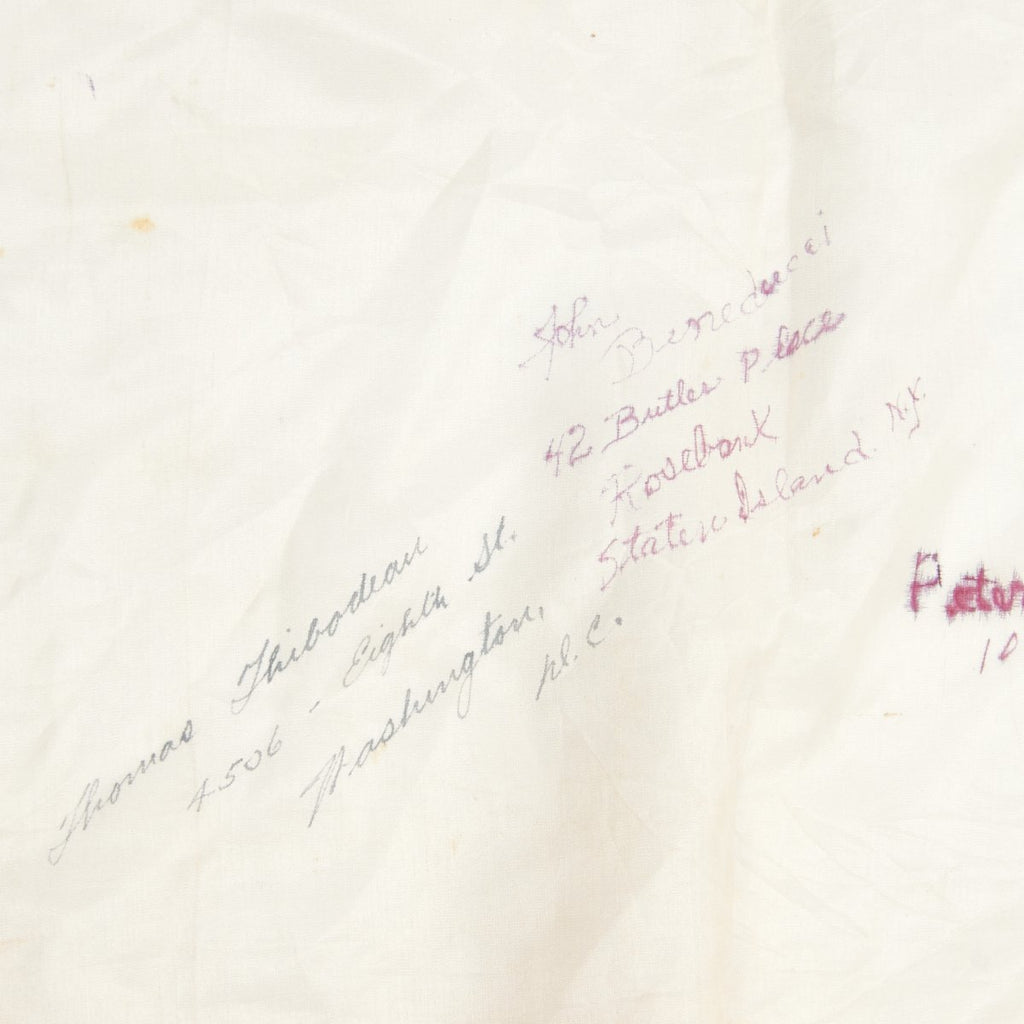 John Beneducci
42 Butler Place
Rosebank
Staten Island. N.Y.
Thomas Thibodeau
4506 - Eighth St.
Washington,
D. C.
Peter
10